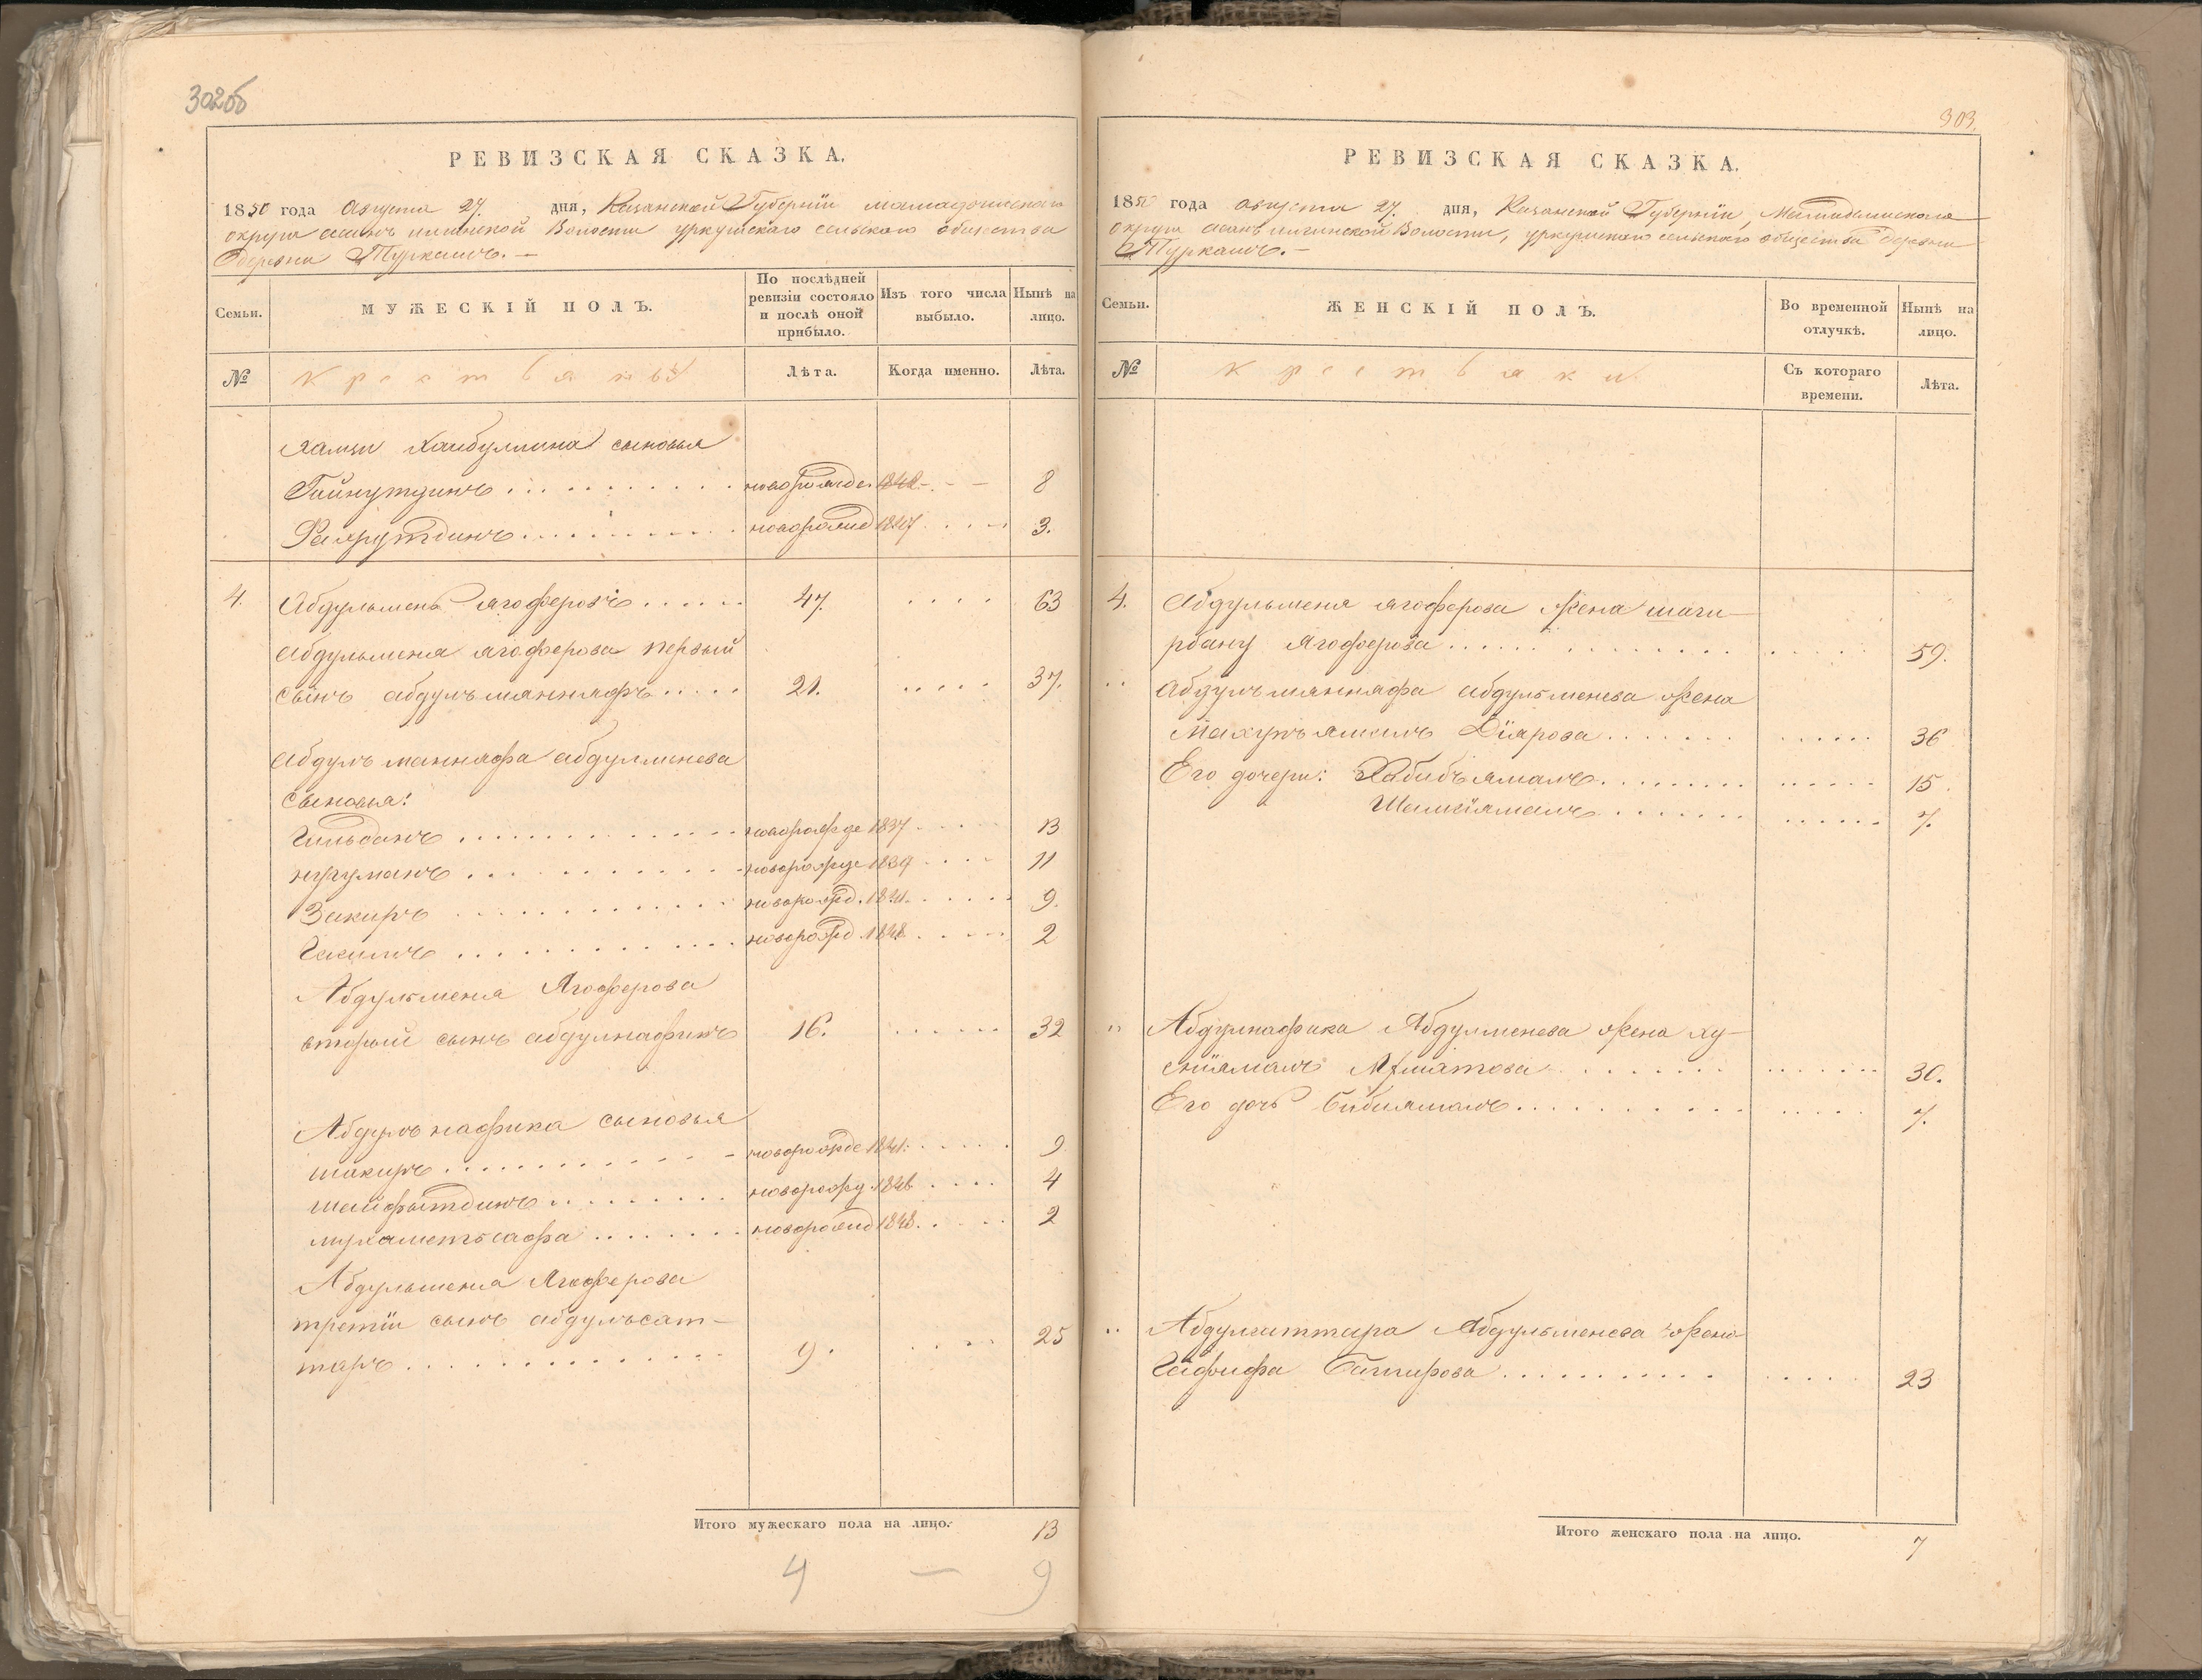 302об
РЕВИЗСКАЯ СКАЗКА.
1850 года Августа 27. дня, Казанской Губерніи мамадышскаго
округа асанъ илгинской Волости уркушскаго сельскаго общества
деревни Туркашъ. –
Семьи.
МУЖЕСКІЙ ПОЛЪ.
По послѣдней ревизіи состояло и послѣ оной прибыло.
Изъ того числа выбыло.
Нынѣ на лицо.
№
крестьянъ
Лѣта.
Когда именно.
Лѣта.
Хамзи Хаибуллина сыновья
Гайнутдинъ новорожде. 8
Фахрутдинъ новорожд 1847 3.
4. Абдульменъ ягоферовъ 47. 63
Абдульменя ягоферова первый
сынъ абдулъманнафъ 21. 37.
абдулъ маннафа абдулминева
сыновья:
Гильванъ новорожде 1837 13
нугуманъ новорожде 1839 11
Закиръ новорожд. 1841. 9.
Гакимъ новорожд. 1848 2
Абдульменя Ягоферова
второй сынъ абдулнафикъ 16. 32
Абдулъ нафика сыновья
шакиръ новорожде 1841. 9
шайфытдинъ новорожд. 1846 4
мухаметьсафа новорожд 1848. 2
Абдульменя Ягоферова
третіи сынъ абдулъсат-
таръ 9. 25
Итого мужескаго пола на лицо. 13
4 – 9
303.
РЕВИЗСКАЯ СКАЗКА.
1850 года августа 27. дня, Казанской Губерніи, Мамадышскаго
округа асанъ илгинской Волости, уркушскаго сельскаго общества деревни
Туркашъ. –
Семьи.
ЖЕНСКІЙ ПОЛЪ.
Во временной отлучкѣ.
Нынѣ на лицо.
№
крестьянки
Съ котораго времени.
Лѣта.
4. Абдульменя ягоферова жена шаги-
рбану ягоферова 59.
" Абдулъманнафа абдульменева жена
Махупъямалъ Діярова 36
Его дочери: Хабибъямалъ 15.
Шамсіямалъ 7.
" Абдулнафика Абдулменева жена ху-
сніямалъ 30.
Его дочь Бибиямалъ 7.
" Абдулсаттара Абдульменева жена
Гафифа Баширова 23
Итого женскаго пола на лицо. 7